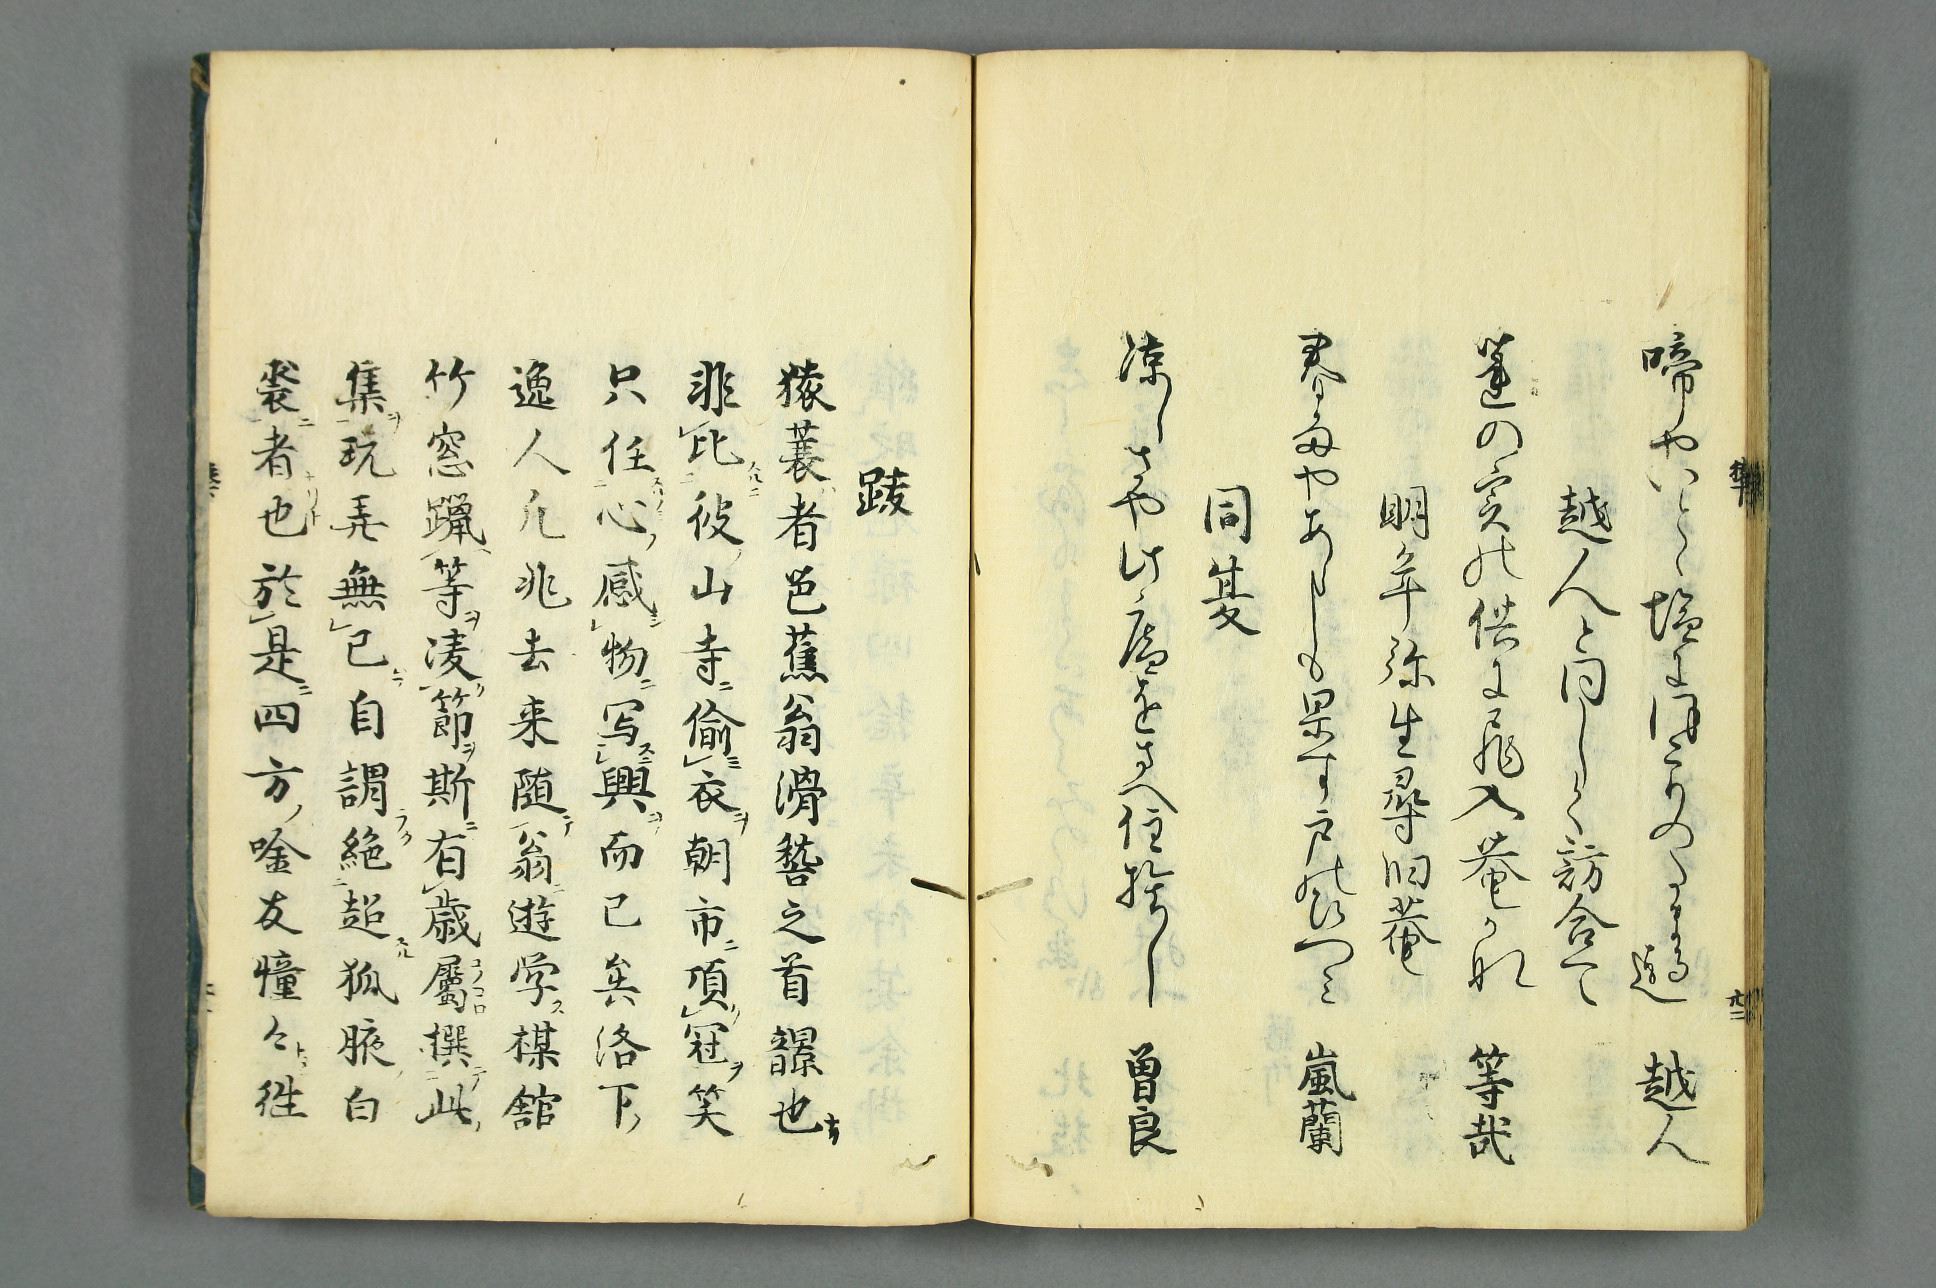 啼やいとゝ塩にほこりのたまる迄　越人
越人と同しく訪合て
蓮の実の供に飛入庵かな　等哉
明年弥生尋旧菴
春雨やあらしも果す戸のひつミ　嵐蘭
同夏
涼しさや此庵をさへ住捨し　曽良
跋
猿蓑者芭蕉翁滑稽之首韻也
非比彼山寺偸衣朝市頂冠笑
只任心感物写興而已矣洛下
逸人凡兆去来随翁遊学棋館
竹窓躐等凌節斯有歳属撰此
集玩弄無已自謂絶超狐腋白
裘者也於是四方唫友憧々往